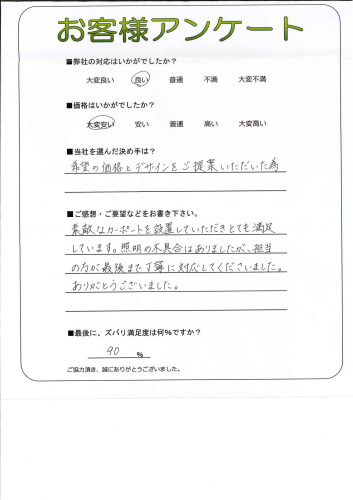 お客様アンケート
■弊社の対応はいかがでしたか？
大変良い 良い 普通 不満 大変不満
■価格はいかがでしたか？
大変安い 安い 普通 高い 大変高い
■当社を選んだ決め手は？
希望の価格とデザインをご提案いただいた為
■ご感想・ご要望などをお書き下さい。
素敵なカーポートを設置していただきとても満足
しています。照明の不具合はありましたが、担当
の方が最後まで丁寧に対応してくださいました。
ありがとうございました。
■最後に、ズバリ満足度は何％ですか？
90 ％
ご協力頂き、誠にありがとうございました。